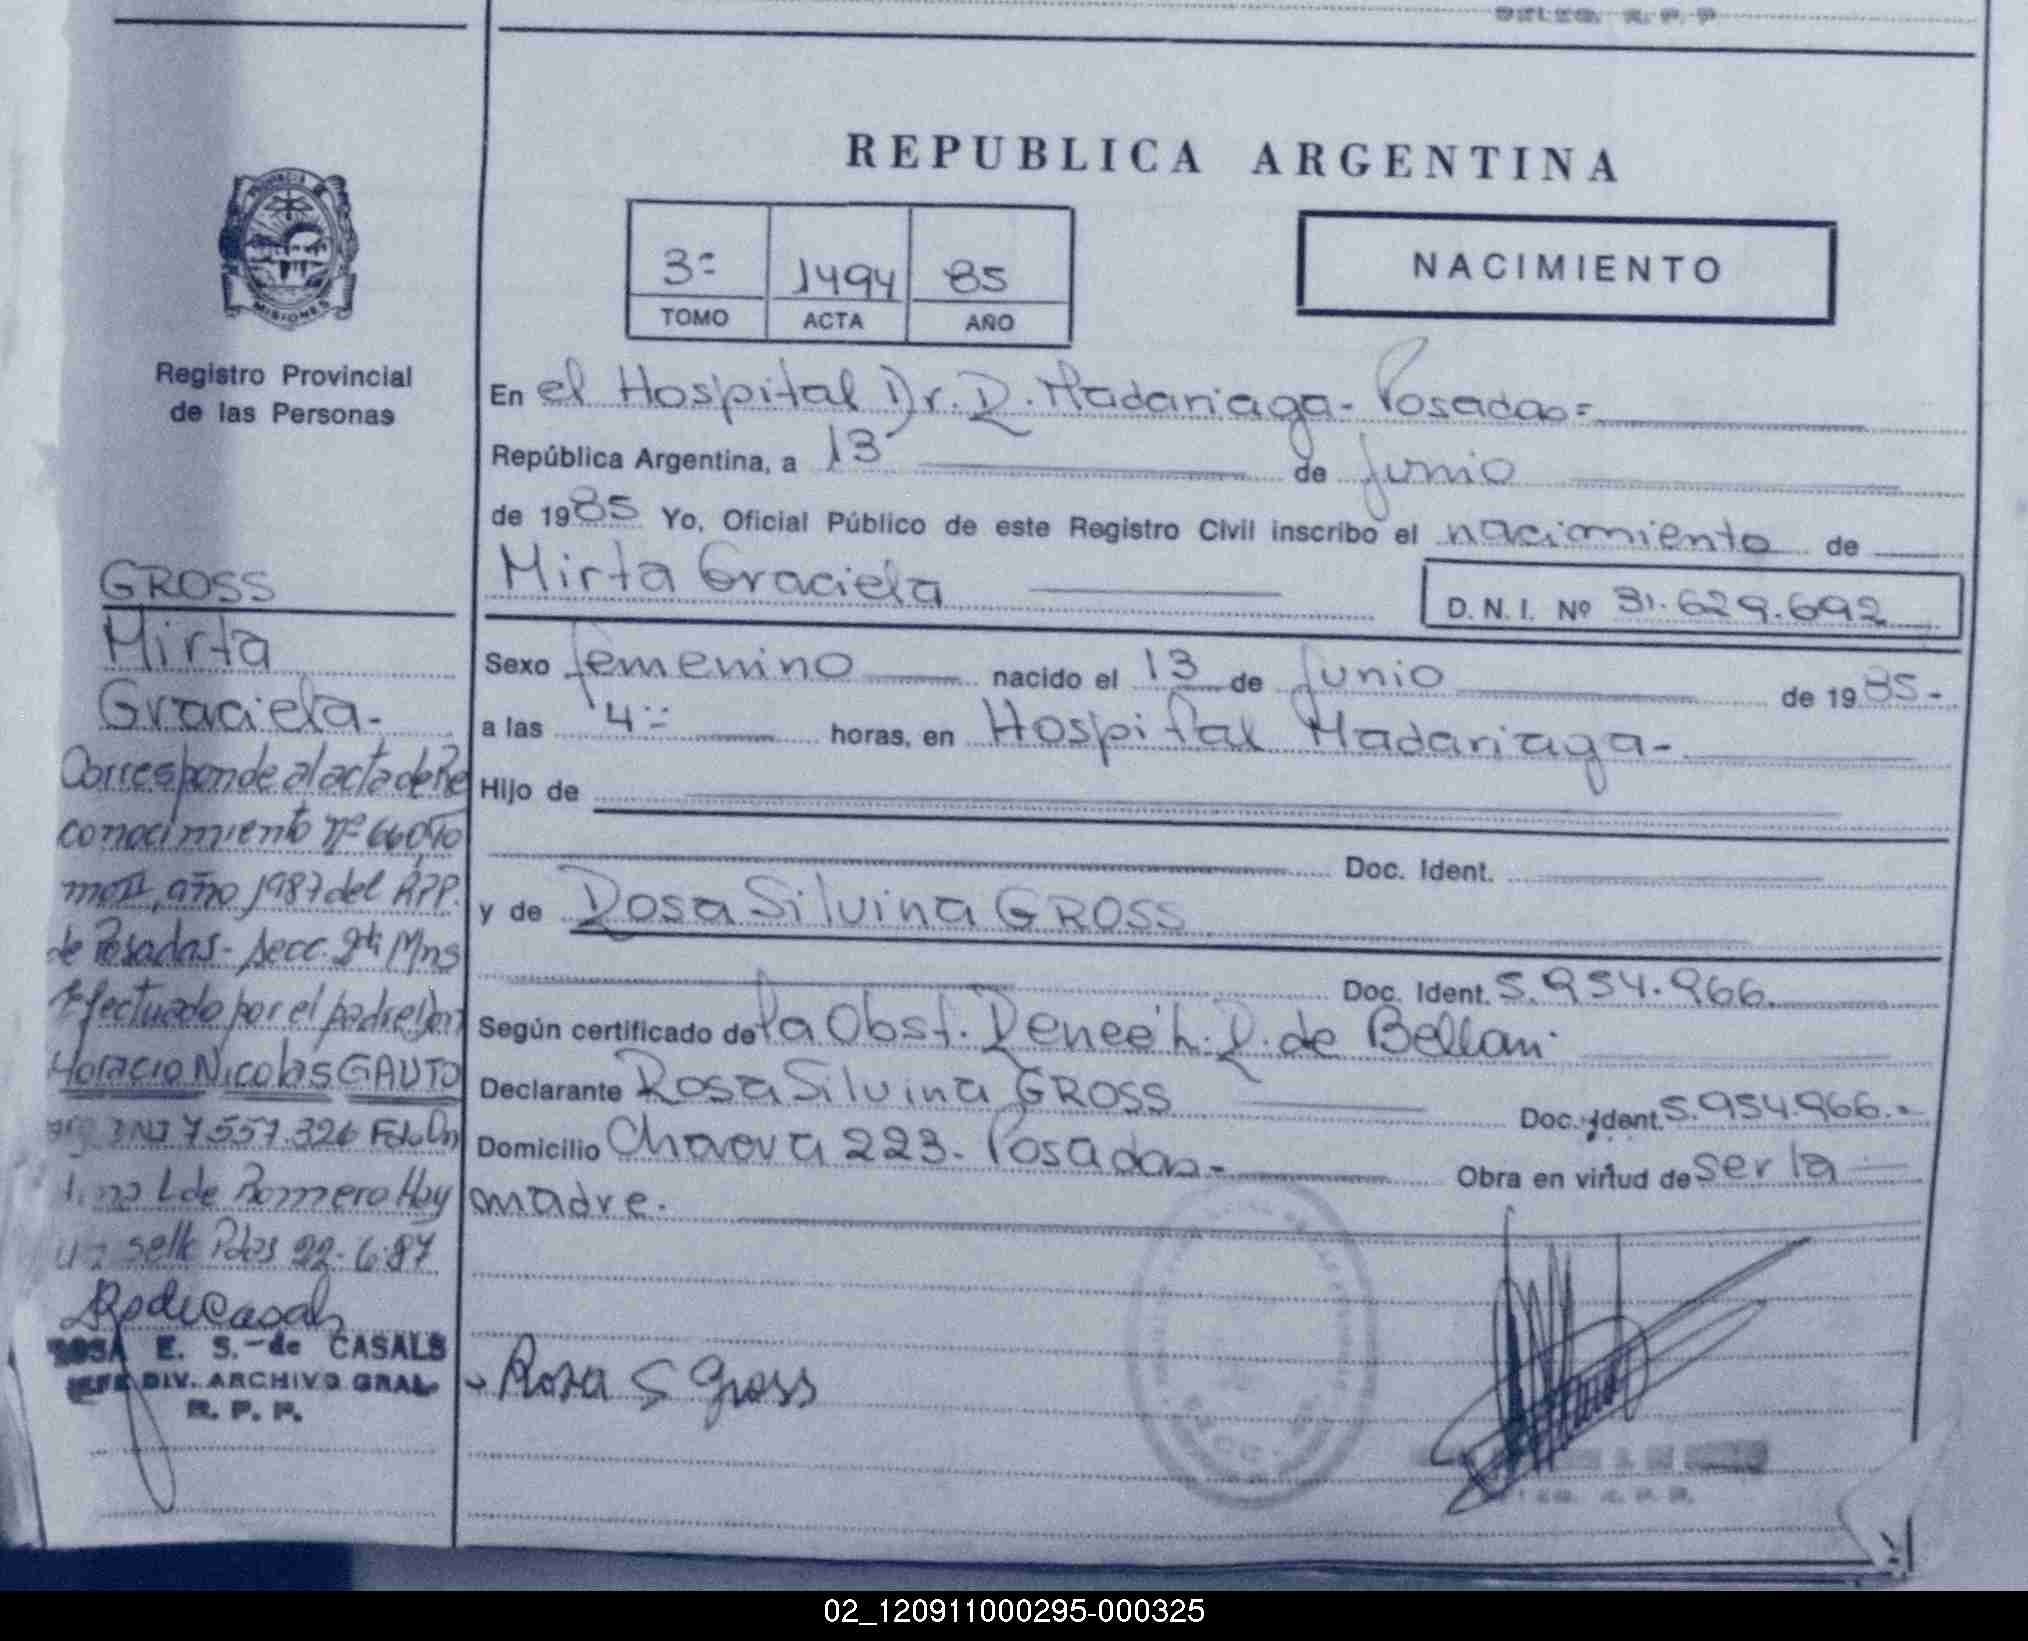 REPUBLICA ARGENTINA
3º 1494 85
TOMO ACTA AÑO
NACIMIENTO
PROVINCIA DE
MISIONES
Registro Provincial
de las Personas
GROSS
Mirta
Graciela-
Corresponde al acta de Re
conocimiento nº 660 To
mo II, año 1987 del R.P.P.
de Posadas- Secc. 2da Mns
Efectuado por el padre Don
Horacio Nicolás GAUTO
arg. DNI 7.557.326
L de Romero Hay
selk Pdas 22-6-87
ROSA E. S.-de CASALS
JEFE DIV. ARCHIVO GRAL
R. P. P.
En el Hospital Dr. R. Madariaga- Posadas=
República Argentina, a 13 de Junio
de 1985 Yo, Oficial Público de este Registro Civil inscribo el nacimiento de
Mirta Graciela D. N. I. Nº 31.629.692
Sexo femenino nacido el 13 de Junio de 1985-
a las 4 horas, en Hospital Madariaga-
Hijo de
Doc. Ident.
y de Rosa Silvina GROSS
Doc. Ident. 5.954.966.
Según certificado de la Obst. Reneé L. R. de Bellani
Declarante Rosa Silvina GROSS Doc. Ident. 5.954.966.-
Domicilio 223- Posadas- Obra en virtud de ser la
madre.
Rosa S Gross
02_120911000295-000325